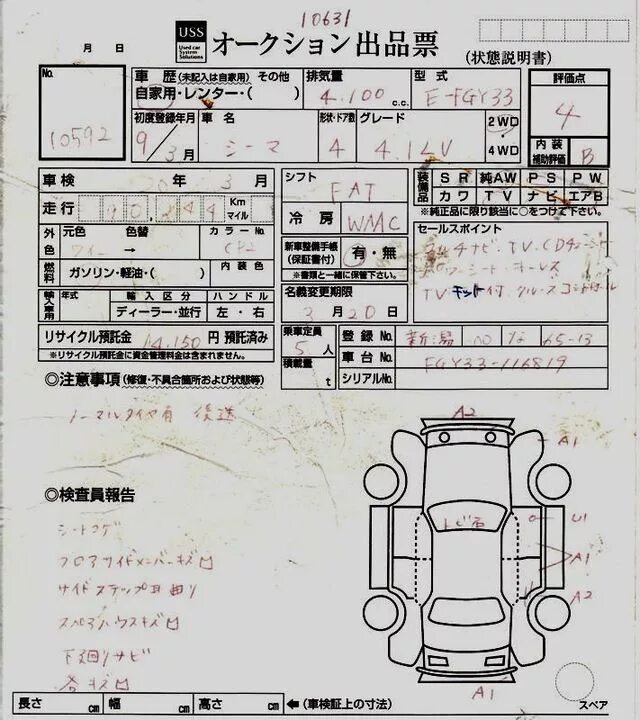 10631
USS Used car System Solutions オークション出品票 (状態説明書)
月 日
No. 10592
車歴 (未記入は自家用) その他
自家用・レンター・( )
排気量 4.100 c.c.
型式 E-FGY33
評価点 4
初度登録年月 9/3月
車名 シーマ
形状・ドア数 4
グレード 4.1LV
2WD・4WD
内装補助評価 B
車検 年 3月
シフト FAT
装備品 SR 純AW PS PW
カワ TV ナビ エアB
※純正品に限り該当に○をつけて下さい。
走行 Km マイル
冷房 WAC
外色 元色 色替 カラーNo.
ワイン →
新車整備手帳(保証書付) 有・無
※書類と一緒に保管下さい。
セールスポイント
マルチナビ・TV・CDチェンジャー
パワーシート・オーレス
TVキット付・クルーズコントロール
燃料 ガソリン・軽油・( ) 内装色
名義変更期限 3月20日
輸入車用 年式 輸入区分 ハンドル
ディーラー・並行 左・右
リサイクル預託金 14.150円 預託済み
※リサイクル預託金に資金管理料金は含まれません。
乗車定員 5人
積載量 t
登録No. 新潟 65-13
車台No. FGY33-116819
シリアルNo.
◎注意事項(修復・不具合箇所および状態等)
ノーマルタイヤ有 後送
A2
A1
◎検査員報告
シートコゲ
フロアサイドメンバーキズ凹
サイドステップ凹曲り
スペアハウスキズ凹
下廻りサビ
各キズ凹
トビ石
U1
A1
A2
A1
スペア
長さ cm 幅 cm 高さ cm ←(車検証上の寸法)